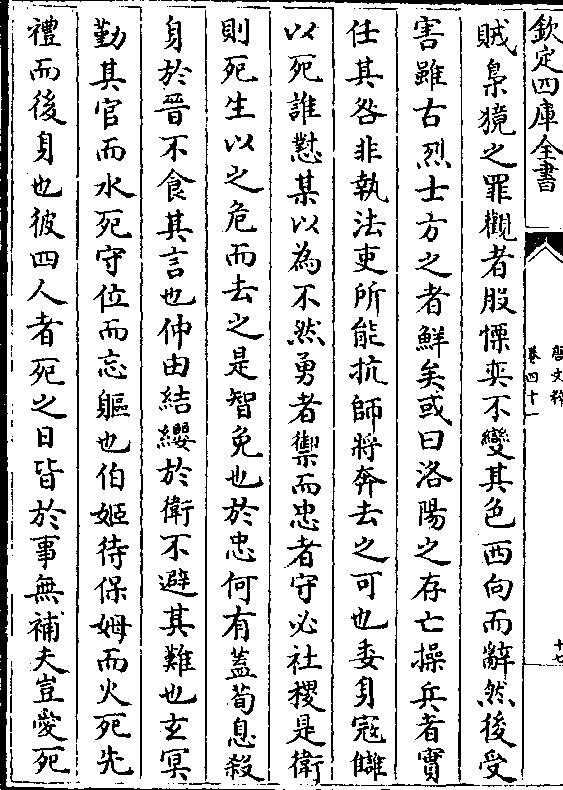 欽定四庫全書
唐文粹
卷四十一
十七
賊梟獍之罪觀者股慄奕不變其色西向而辭然後受
害雖古烈士方之者鮮矣或曰洛陽之存亡操兵者實
任其咎非執法吏所能抗師將奔去之可也委身寇讎
以死誰懟某以為不然勇者禦而忠者守必社稷是衛
則死生以之危而去之是智免也於忠何有蓋荀息殺
身於晉不食其言也仲由結纓於衛不避其難也玄冥
勤其官而水死守位而忘軀也伯姬待保姆而火死先
禮而後身也彼四人者死之日皆於事無補夫豈愛死